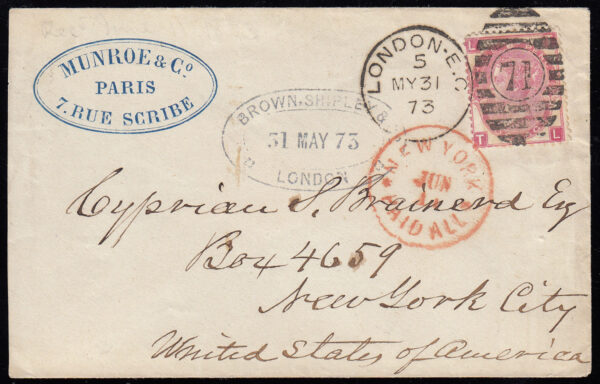 MUNROE & Co
PARIS
7. RUE SCRIBE
BROWN, SHIPLEY &
31 MAY 73
LONDON
LONDON-E.C
5
MY 31
73
71
L
T
L
NEW YORK
JUN
PAID ALL
Cyprian S. Brainerd Esq
Box 4659
New York City
United States of America